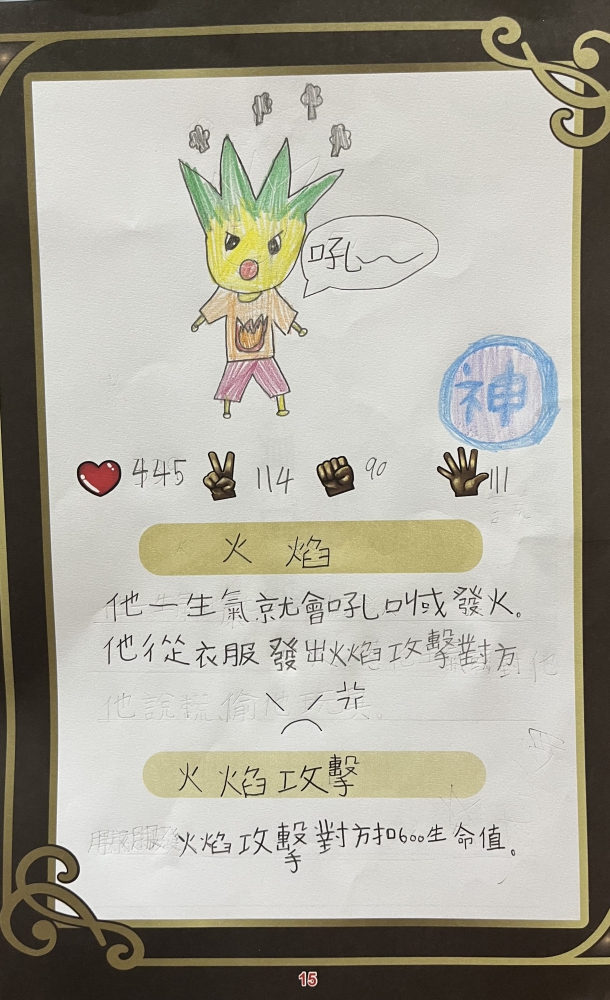 吼~~
神
445 114 90 111
火焰
他一生氣就會吼叫或發火。
他從衣服發出火焰攻擊對方
火焰攻擊
火焰攻擊對方扣600生命值。
15